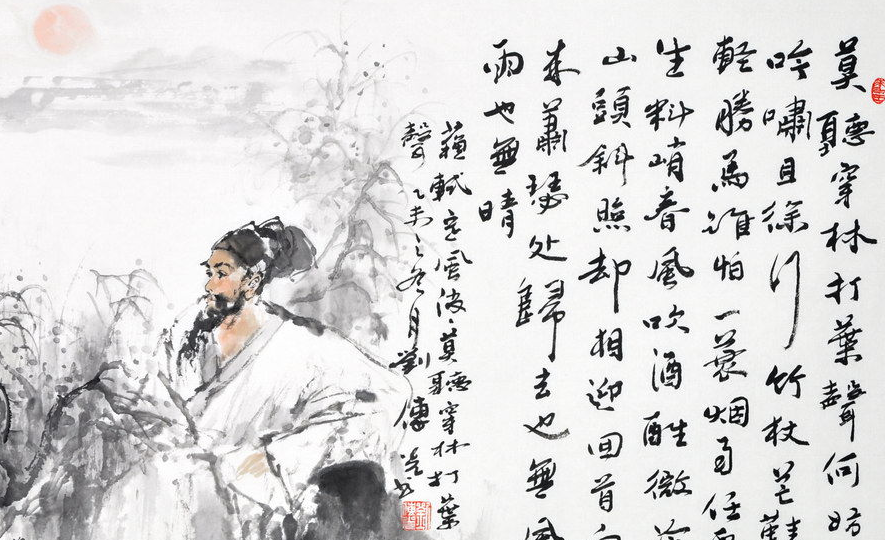 莫聽穿林打葉聲何妨
吟嘯且徐行竹杖芒鞋
輕勝馬誰怕一蓑烟雨任
生料峭春風吹酒醒微
山頭斜照却相迎回首向
来蕭瑟处歸去也無風
雨也無晴
蘇軾定風波莫聽穿林打葉
聲乙未之冬月劉傳